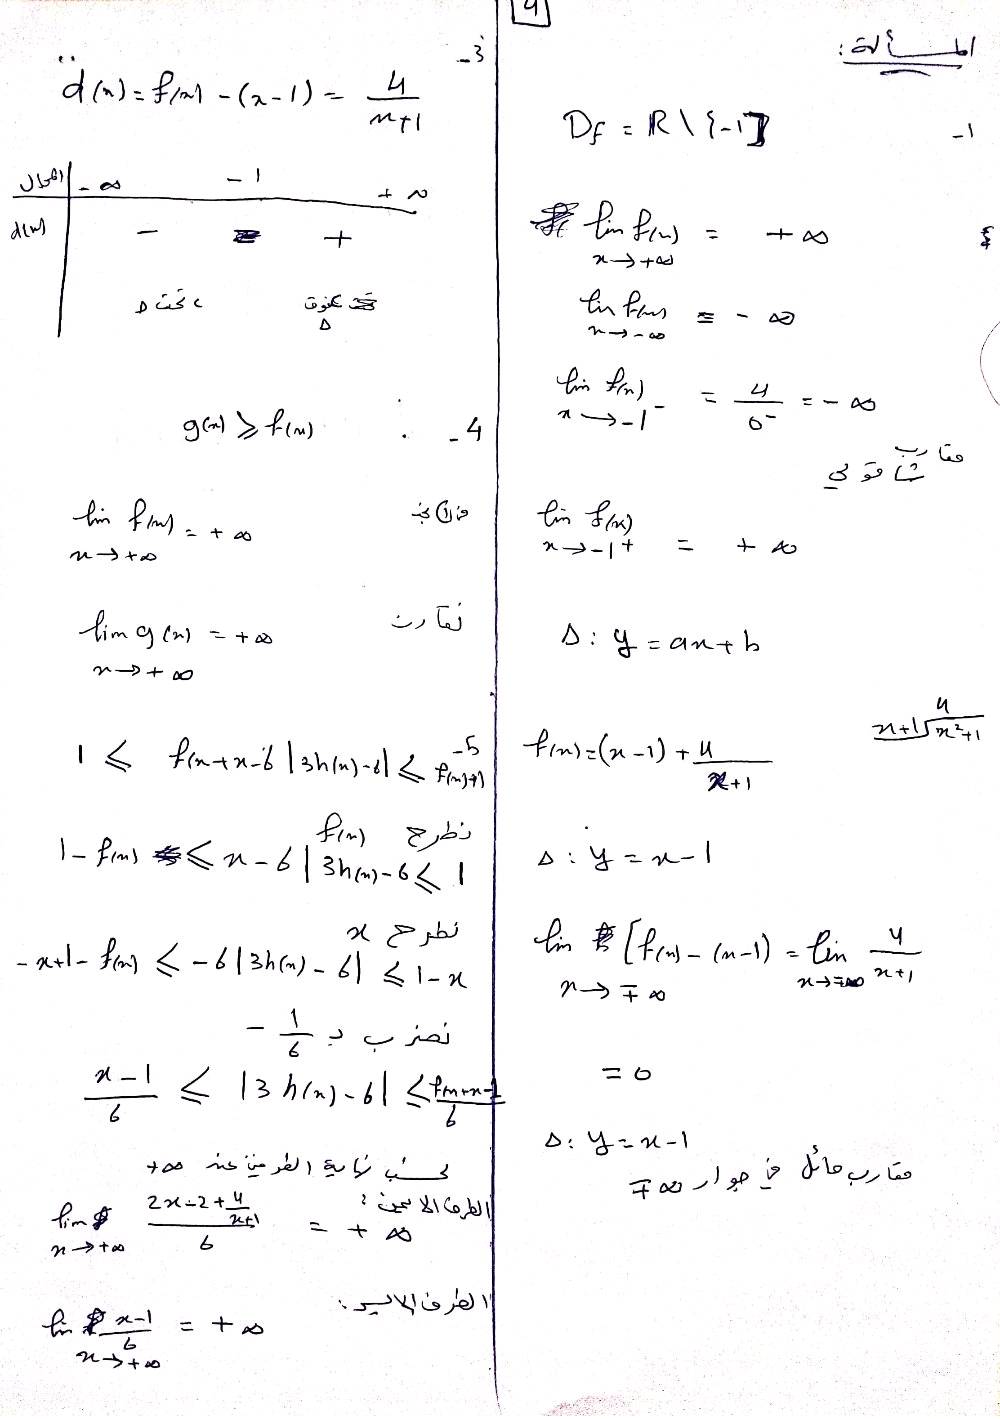 4
المسألة:
1- Df = R \ {-1}
lim f(x) = +∞
x→+∞
lim f(x) = -∞
x→-∞
lim f(x) = 4/0⁻ = -∞
x→-1⁻
مقارب شاقولي
lim f(x) = +∞
x→-1⁺
Δ: y = ax+b
f(x) = (x-1) + 4/(x+1)
x+1 √ x²+1
4
Δ: y = x-1
lim [f(x) - (x-1) = lim 4/(x+1)
x→∓∞ x→∓∞
= 0
Δ: y = x-1
مقارب مائل في جوار ∓∞
3-
d(x) = f(x) - (x-1) = 4/(x+1)
المجال -∞ -1 +∞
d(x) - +
تحت Δ فوق Δ
4- g(x) ⩾ f(x)
lim f(x) = +∞
x→+∞
تقارن
lim g(x) = +∞
x→+∞
5- 1 ⩽ f(x)+x-6|3h(x)-6| ⩽ f(x)+1
نطرح f(x)
1-f(x) ⩽ x-6|3h(x)-6 ⩽ 1
نطرح x
-x+1-f(x) ⩽ -6|3h(x)-6| ⩽ 1-x
نضرب بـ -1/6
(x-1)/6 ⩽ |3h(x)-6| ⩽ (f(x)+x-1)/6
نحسب نهاية الطرفين عند +∞
الطرف الايمن:
lim (2x-2+4/(x+1))/6 = +∞
x→+∞
الطرف الايسر:
lim (x-1)/6 = +∞
x→+∞